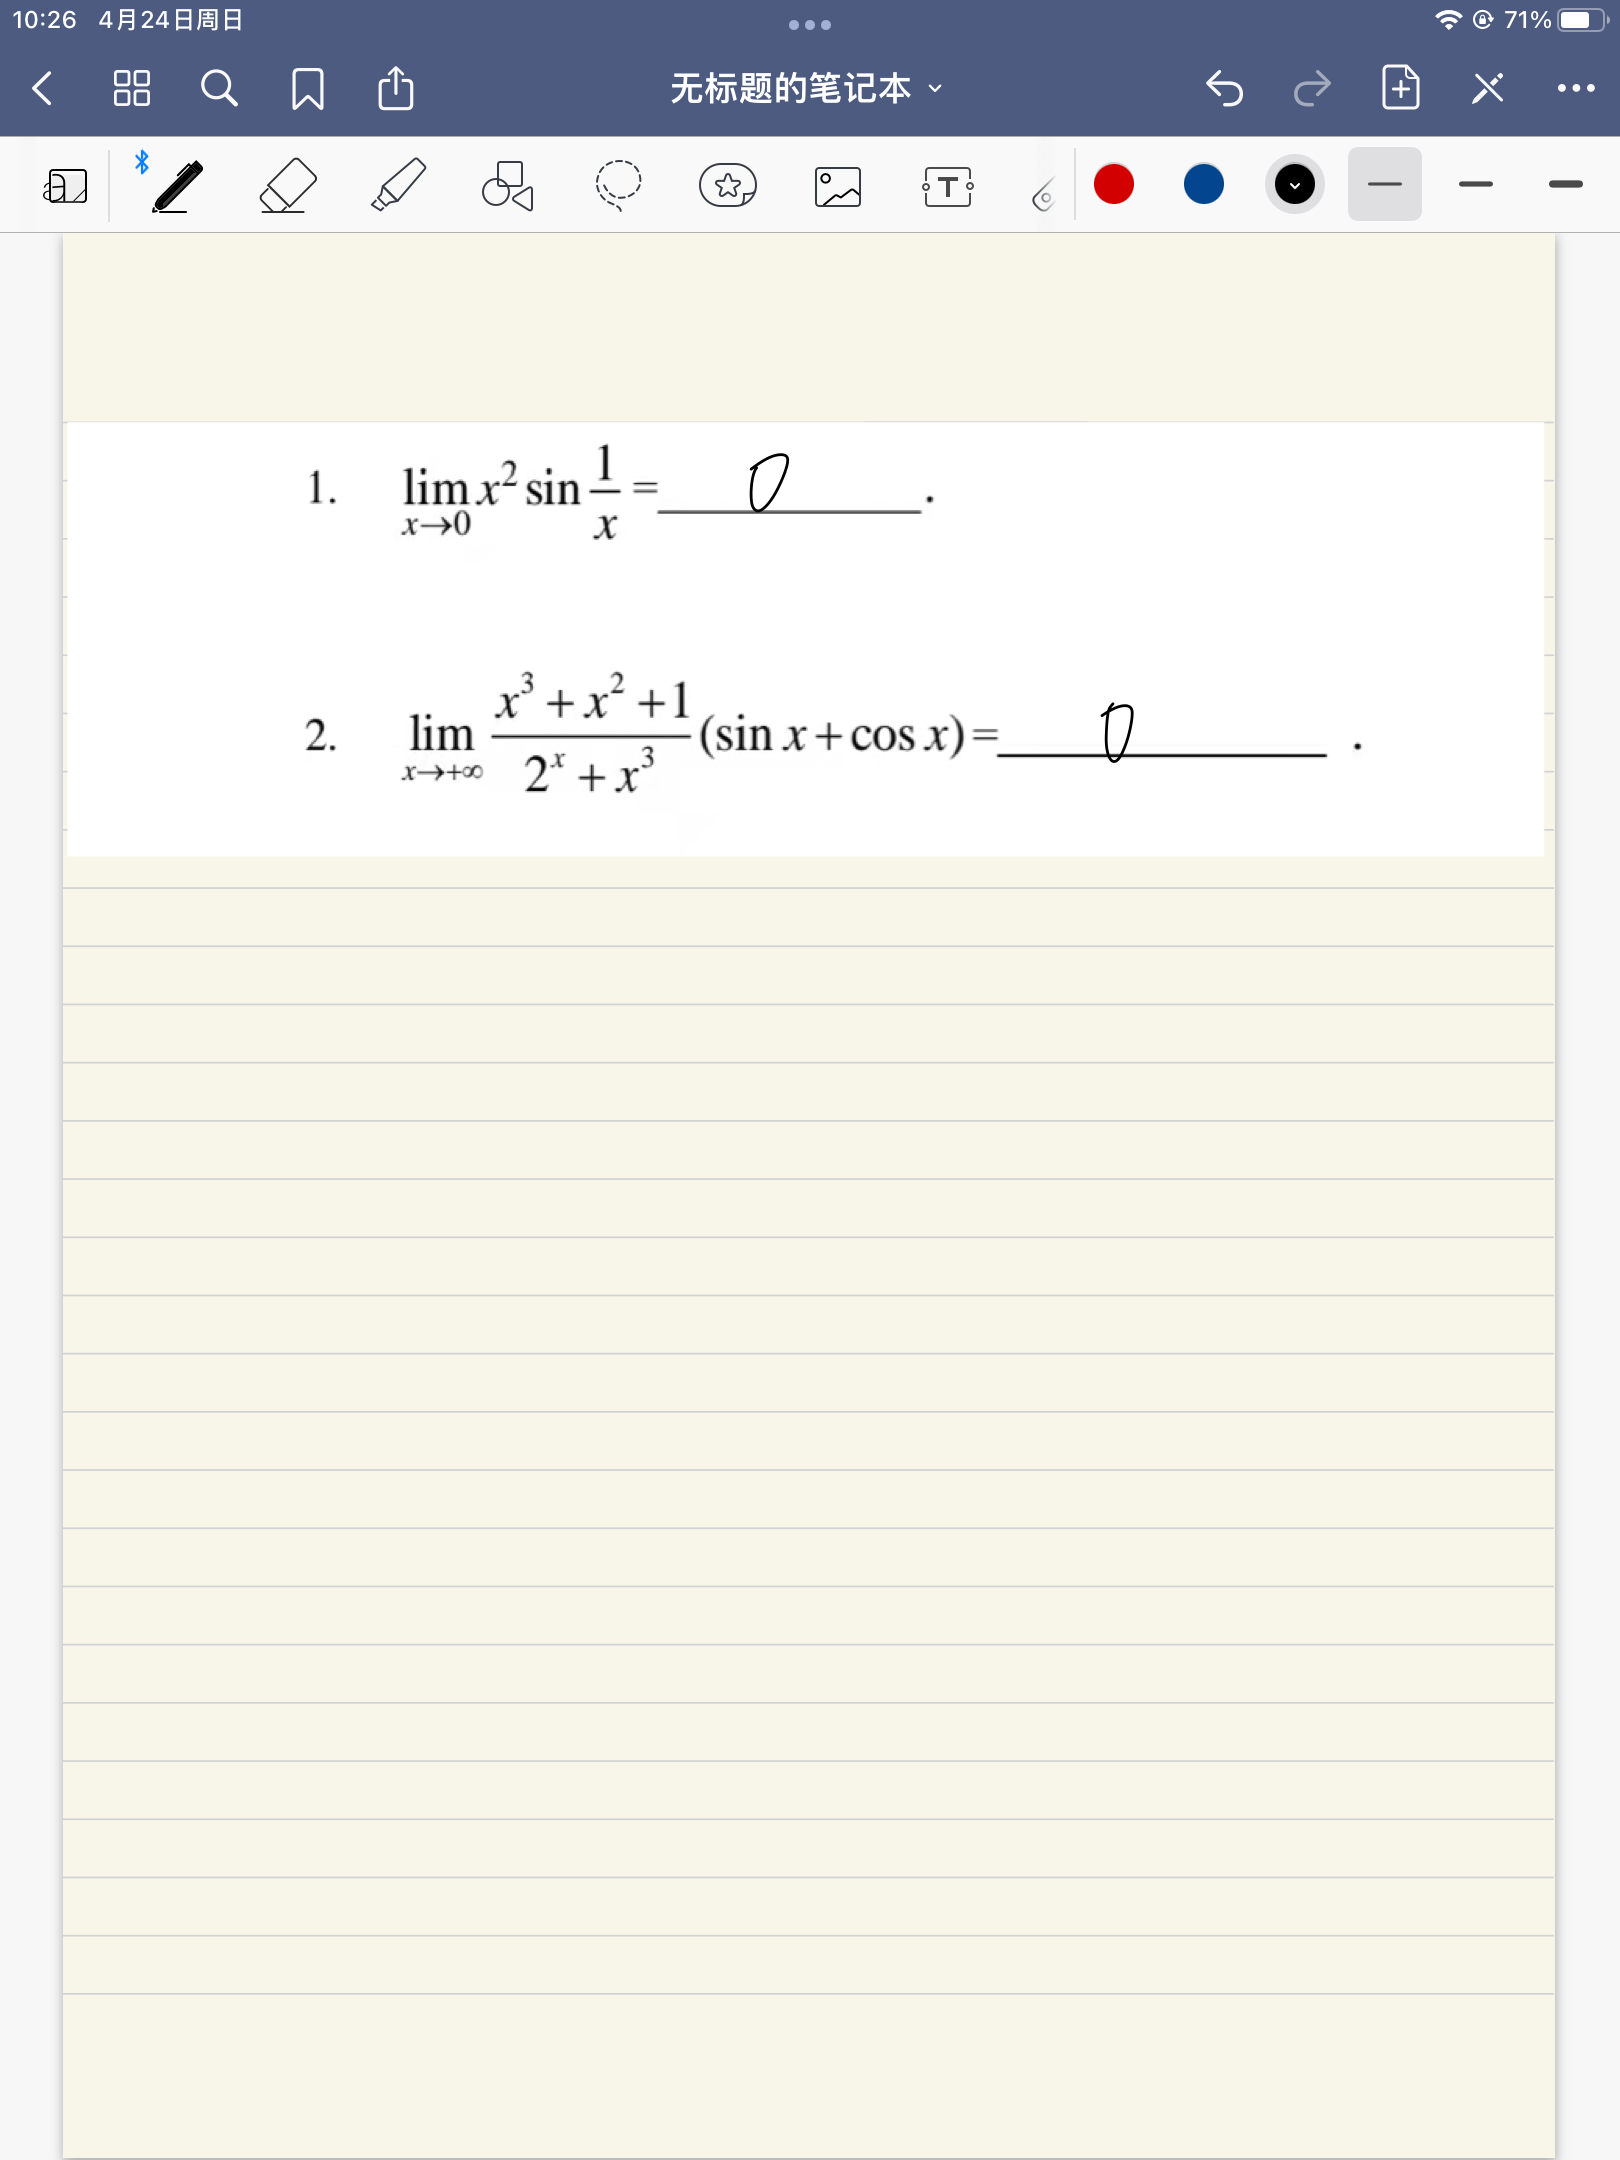 10:26 4月24日周日 71%
无标题的笔记本
1. lim x→0 x² sin 1/x = 0 .
2. lim x→+∞ (x³ + x² + 1)/(2ˣ + x³) (sin x + cos x) = 0 .